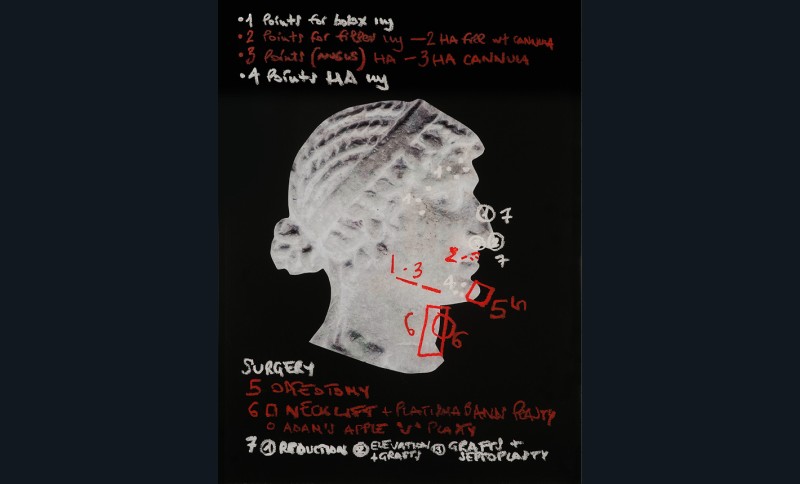 • 1 Points for botox inj
• 2 Points for filler inj — 2 HA fill wt CANNULA
• 3 Points (ANGLES) HA — 3 HA CANNULA
• 4 Points HA inj
1 7
2
7
2
1 - 3
4
5
6 6
SURGERY
5 OSTEOTOMY
6 □ NECK LIFT + PLATISMA BAND PLASTY
○ ADAM'S APPLE PLASTY
7 ① REDUCTION ② ELEVATION + GRAFTS ③ GRAFTS + SEPTOPLASTY